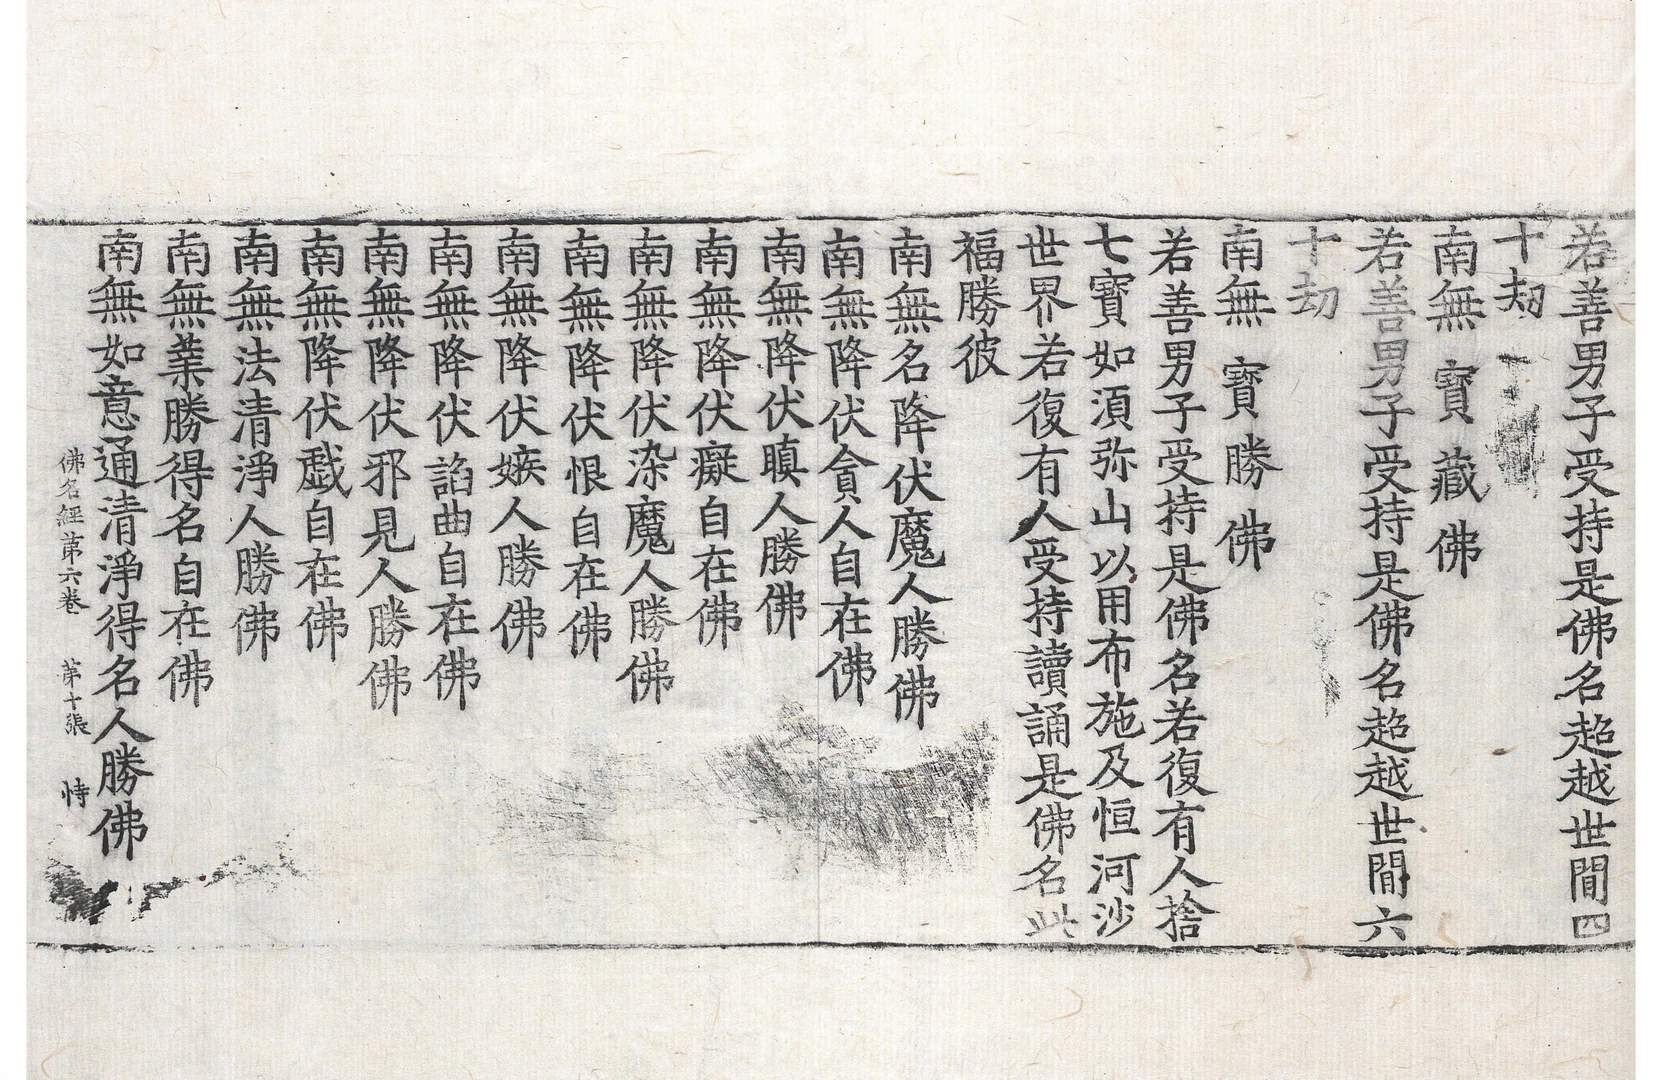 若善男子受持是佛名超越世間四
十劫
南無寶藏佛
若善男子受持是佛名超越世間六
十劫
南無寶勝佛
若善男子受持是佛名若復有人捨
七寶如須弥山以用布施及恒河沙
世界若復有人受持讀誦是佛名此
福勝彼
南無名降伏魔人勝佛
南無降伏貪人自在佛
南無降伏瞋人勝佛
南無降伏癡自在佛
南無降伏染魔人勝佛
南無降伏恨自在佛
南無降伏嫉人勝佛
南無降伏諂曲自在佛
南無降伏邪見人勝佛
南無降伏戱自在佛
南無法清淨人勝佛
南無業勝得名自在佛
南無如意通清淨得名人勝佛
佛名經第六卷 第十張 恃